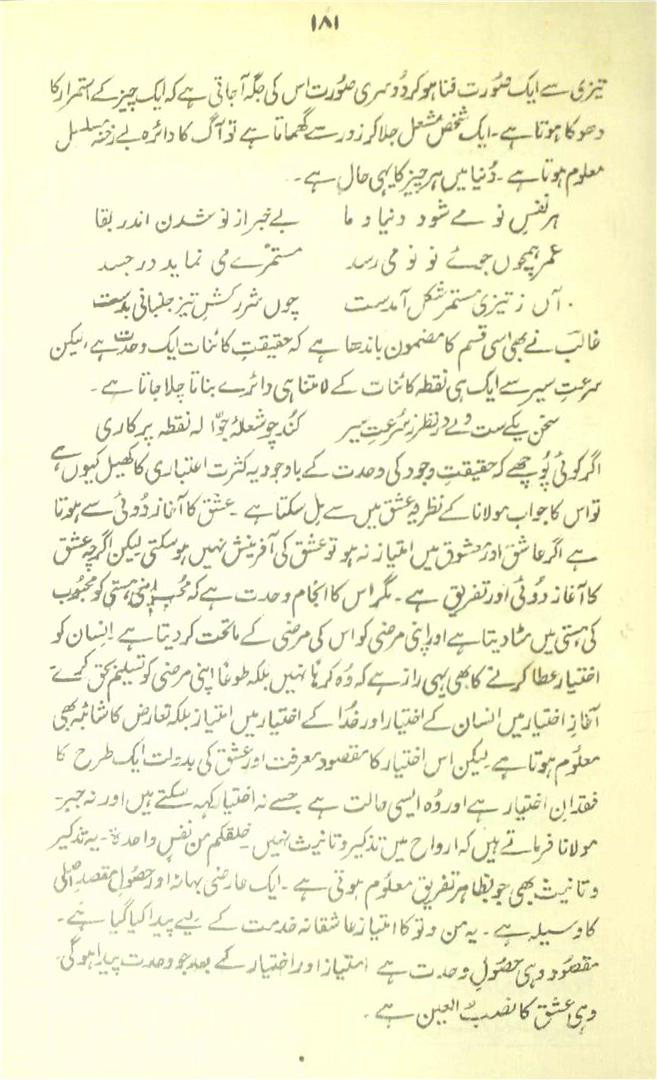 ۱۸۱
تیزی سے ایک صُورت فنا ہو کر دُوسری صُورت اس کی جگہ آ جاتی ہے کہ ایک چیز کے استمرار کا
دھوکا ہوتا ہے۔ ایک شخص مشعل جلا کر زور سے گھماتا ہے تو آگ کا دائرہ بے رخنہ مسلسل
معلوم ہوتا ہے۔ دُنیا میں ہر چیز کا یہی حال ہے۔
ہر نفس نو مے شود دنیا و ما بے خبر از نو شدن اندر بقا
عمر ہمچوں جوئے نو نو می رسد مستمرّے می نماید در جسد
آں ز تیزی مستمر شکل آمدست چوں شرر کش تیز جنبانی بدست
غالب نے بھی اسی قسم کا مضمون باندھا ہے کہ حقیقتِ کائنات ایک وحدت ہے، لیکن
سرعتِ سیر سے ایک ہی نقطہ کائنات کے لامتناہی دائرے بناتا چلا جاتا ہے۔
سخن یکے ست ولے در نظر ز سُرعتِ سیر کُند چو شعلۂ جوّالہ نقطہ پرکاری
اگر کوئی پُوچھے کہ حقیقتِ وجود کی وحدت کے باوجود یہ کثرت اعتباری کا کھیل کیوں ہے
تو اس کا جواب مولانا کے نظریۂ عشق میں سے مل سکتا ہے۔ عشق کا آغاز دُوئی سے ہوتا
ہے اگر عاشق اور معشوق میں امتیاز نہ ہو تو عشق کی آفرینش نہیں ہو سکتی لیکن اگرچہ عشق
کا آغاز دوئی اور تفریق ہے۔ مگر اس کا انجام وحدت ہے کہ محب اپنی ہستی کو محبوب
کی ہستی میں مٹا دیتا ہے اور اپنی مرضی کو اس کی مرضی کے ماتحت کر دیتا ہے۔ انسان کو
اختیار عطا کرنے کا بھی یہی راز ہے کہ وُہ کرہاً نہیں بلکہ طوعاً اپنی مرضی کو تسلیم بحق کرے۔
آغازِ اختیار میں انسان کے اختیار اور خُدا کے اختیار میں امتیاز بلکہ تعارض کا شائبہ بھی
معلُوم ہوتا ہے۔ لیکن اس اختیار کا مقصود معرفت اور عشق کی بدولت ایک طرح کا
فقدانِ اختیار ہے اور وُہ ایسی حالت ہے جسے نہ اختیار کہہ سکتے ہیں اور نہ جبر۔
مولانا فرماتے ہیں کہ ارواح میں تذکیر و تانیث نہیں۔ خلقکم من نفسٍ واحدۃ۔ یہ تذکیر
و تانیث بھی جو بظاہر تفریق معلُوم ہوتی ہے۔ ایک عارضی بہانہ اور حصُولِ مقصدِ اصلی
کا وسیلہ ہے۔ یہ من و تو کا امتیاز عاشقانہ خدمت کے لیے پیدا کیا گیا ہے۔
مقصُود وہی حصُولِ وحدت ہے امتیاز اور اختیار کے بعد جو وحدت پیدا ہوگی۔
وہی عشق کا نصبُ العین ہے۔